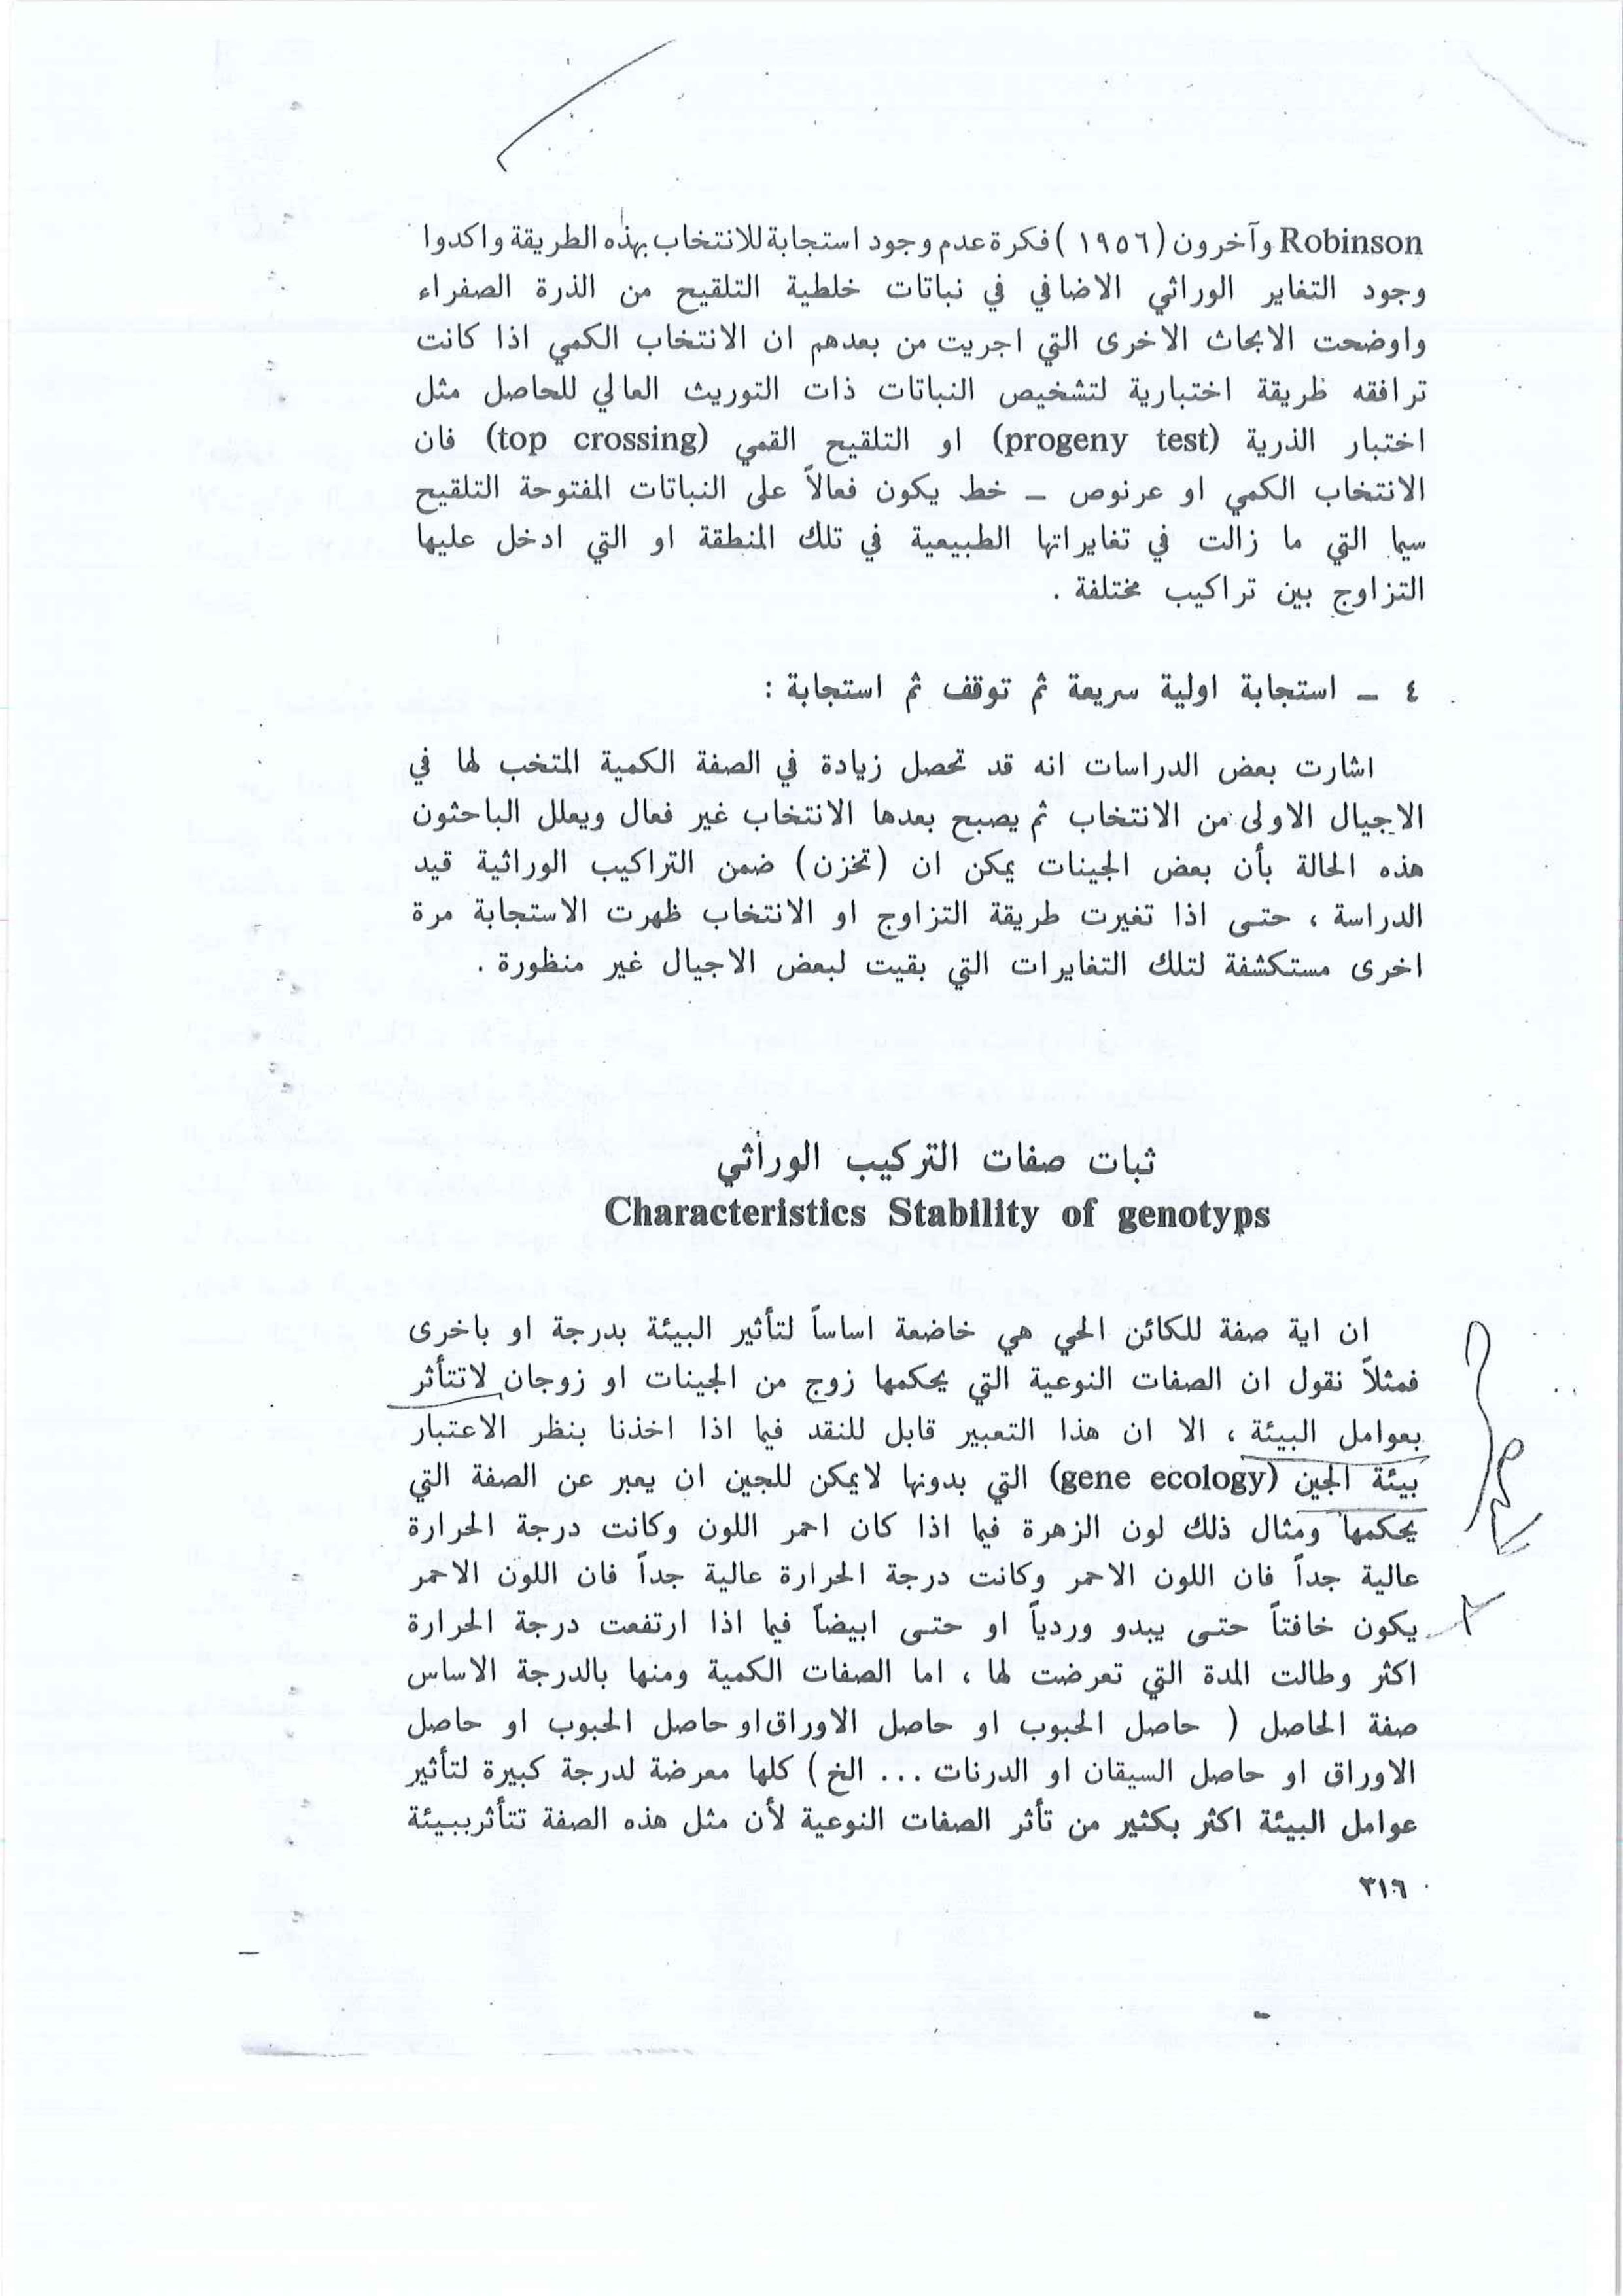 Robinson وآخرون (١٩٥٦) فكرة عدم وجود استجابة للانتخاب بهذه الطريقة واكدوا
وجود التغاير الوراثي الاضافي في نباتات خلطية التلقيح من الذرة الصفراء
واوضحت الابحاث الاخرى التي اجريت من بعدهم ان الانتخاب الكمي اذا كانت
ترافقه طريقة اختبارية لتشخيص النباتات ذات التوريث العالي للحاصل مثل
اختبار الذرية (progeny test) او التلقيح القمي (top crossing) فان
الانتخاب الكمي او عرنوص – خط يكون فعالاً على النباتات المفتوحة التلقيح
سيما التي ما زالت في تغايراتها الطبيعية في تلك المنطقة او التي ادخل عليها
التزاوج بين تراكيب مختلفة .
٤ – استجابة اولية سريعة ثم توقف ثم استجابة :
اشارت بعض الدراسات انه قد تحصل زيادة في الصفة الكمية المتخب لها في
الاجيال الاولى من الانتخاب ثم يصبح بعدها الانتخاب غير فعال ويعلل الباحثون
هذه الحالة بأن بعض الجينات يمكن ان (تخزن) ضمن التراكيب الوراثية قيد
الدراسة ، حتى اذا تغيرت طريقة التزاوج او الانتخاب ظهرت الاستجابة مرة
اخرى مستكشفة لتلك التغايرات التي بقيت لبعض الاجيال غير منظورة .
ثبات صفات التركيب الوراثي
Characteristics Stability of genotyps
ان اية صفة للكائن الحي هي خاضعة اساساً لتأثير البيئة بدرجة او باخرى
فمثلاً نقول ان الصفات النوعية التي يحكمها زوج من الجينات او زوجان لاتتأثر
بعوامل البيئة ، الا ان هذا التعبير قابل للنقد فيما اذا اخذنا بنظر الاعتبار
بيئة الجين (gene ecology) التي بدونها لايمكن للجين ان يعبر عن الصفة التي
يحكمها ومثال ذلك لون الزهرة فيما اذا كان احمر اللون وكانت درجة الحرارة
عالية جداً فان اللون الاحمر وكانت درجة الحرارة عالية جداً فان اللون الاحمر
يكون خافتاً حتى يبدو وردياً او حتى ابيضاً فيما اذا ارتفعت درجة الحرارة
اكثر وطالت المدة التي تعرضت لها ، اما الصفات الكمية ومنها بالدرجة الاساس
صفة الحاصل ( حاصل الحبوب او حاصل الاوراق او حاصل الحبوب او حاصل
الاوراق او حاصل السيقان او الدرنات ... الخ) كلها معرضة لدرجة كبيرة لتأثير
عوامل البيئة اكثر بكثير من تأثر الصفات النوعية لأن مثل هذه الصفة تتأثرببيئة
٣١٦